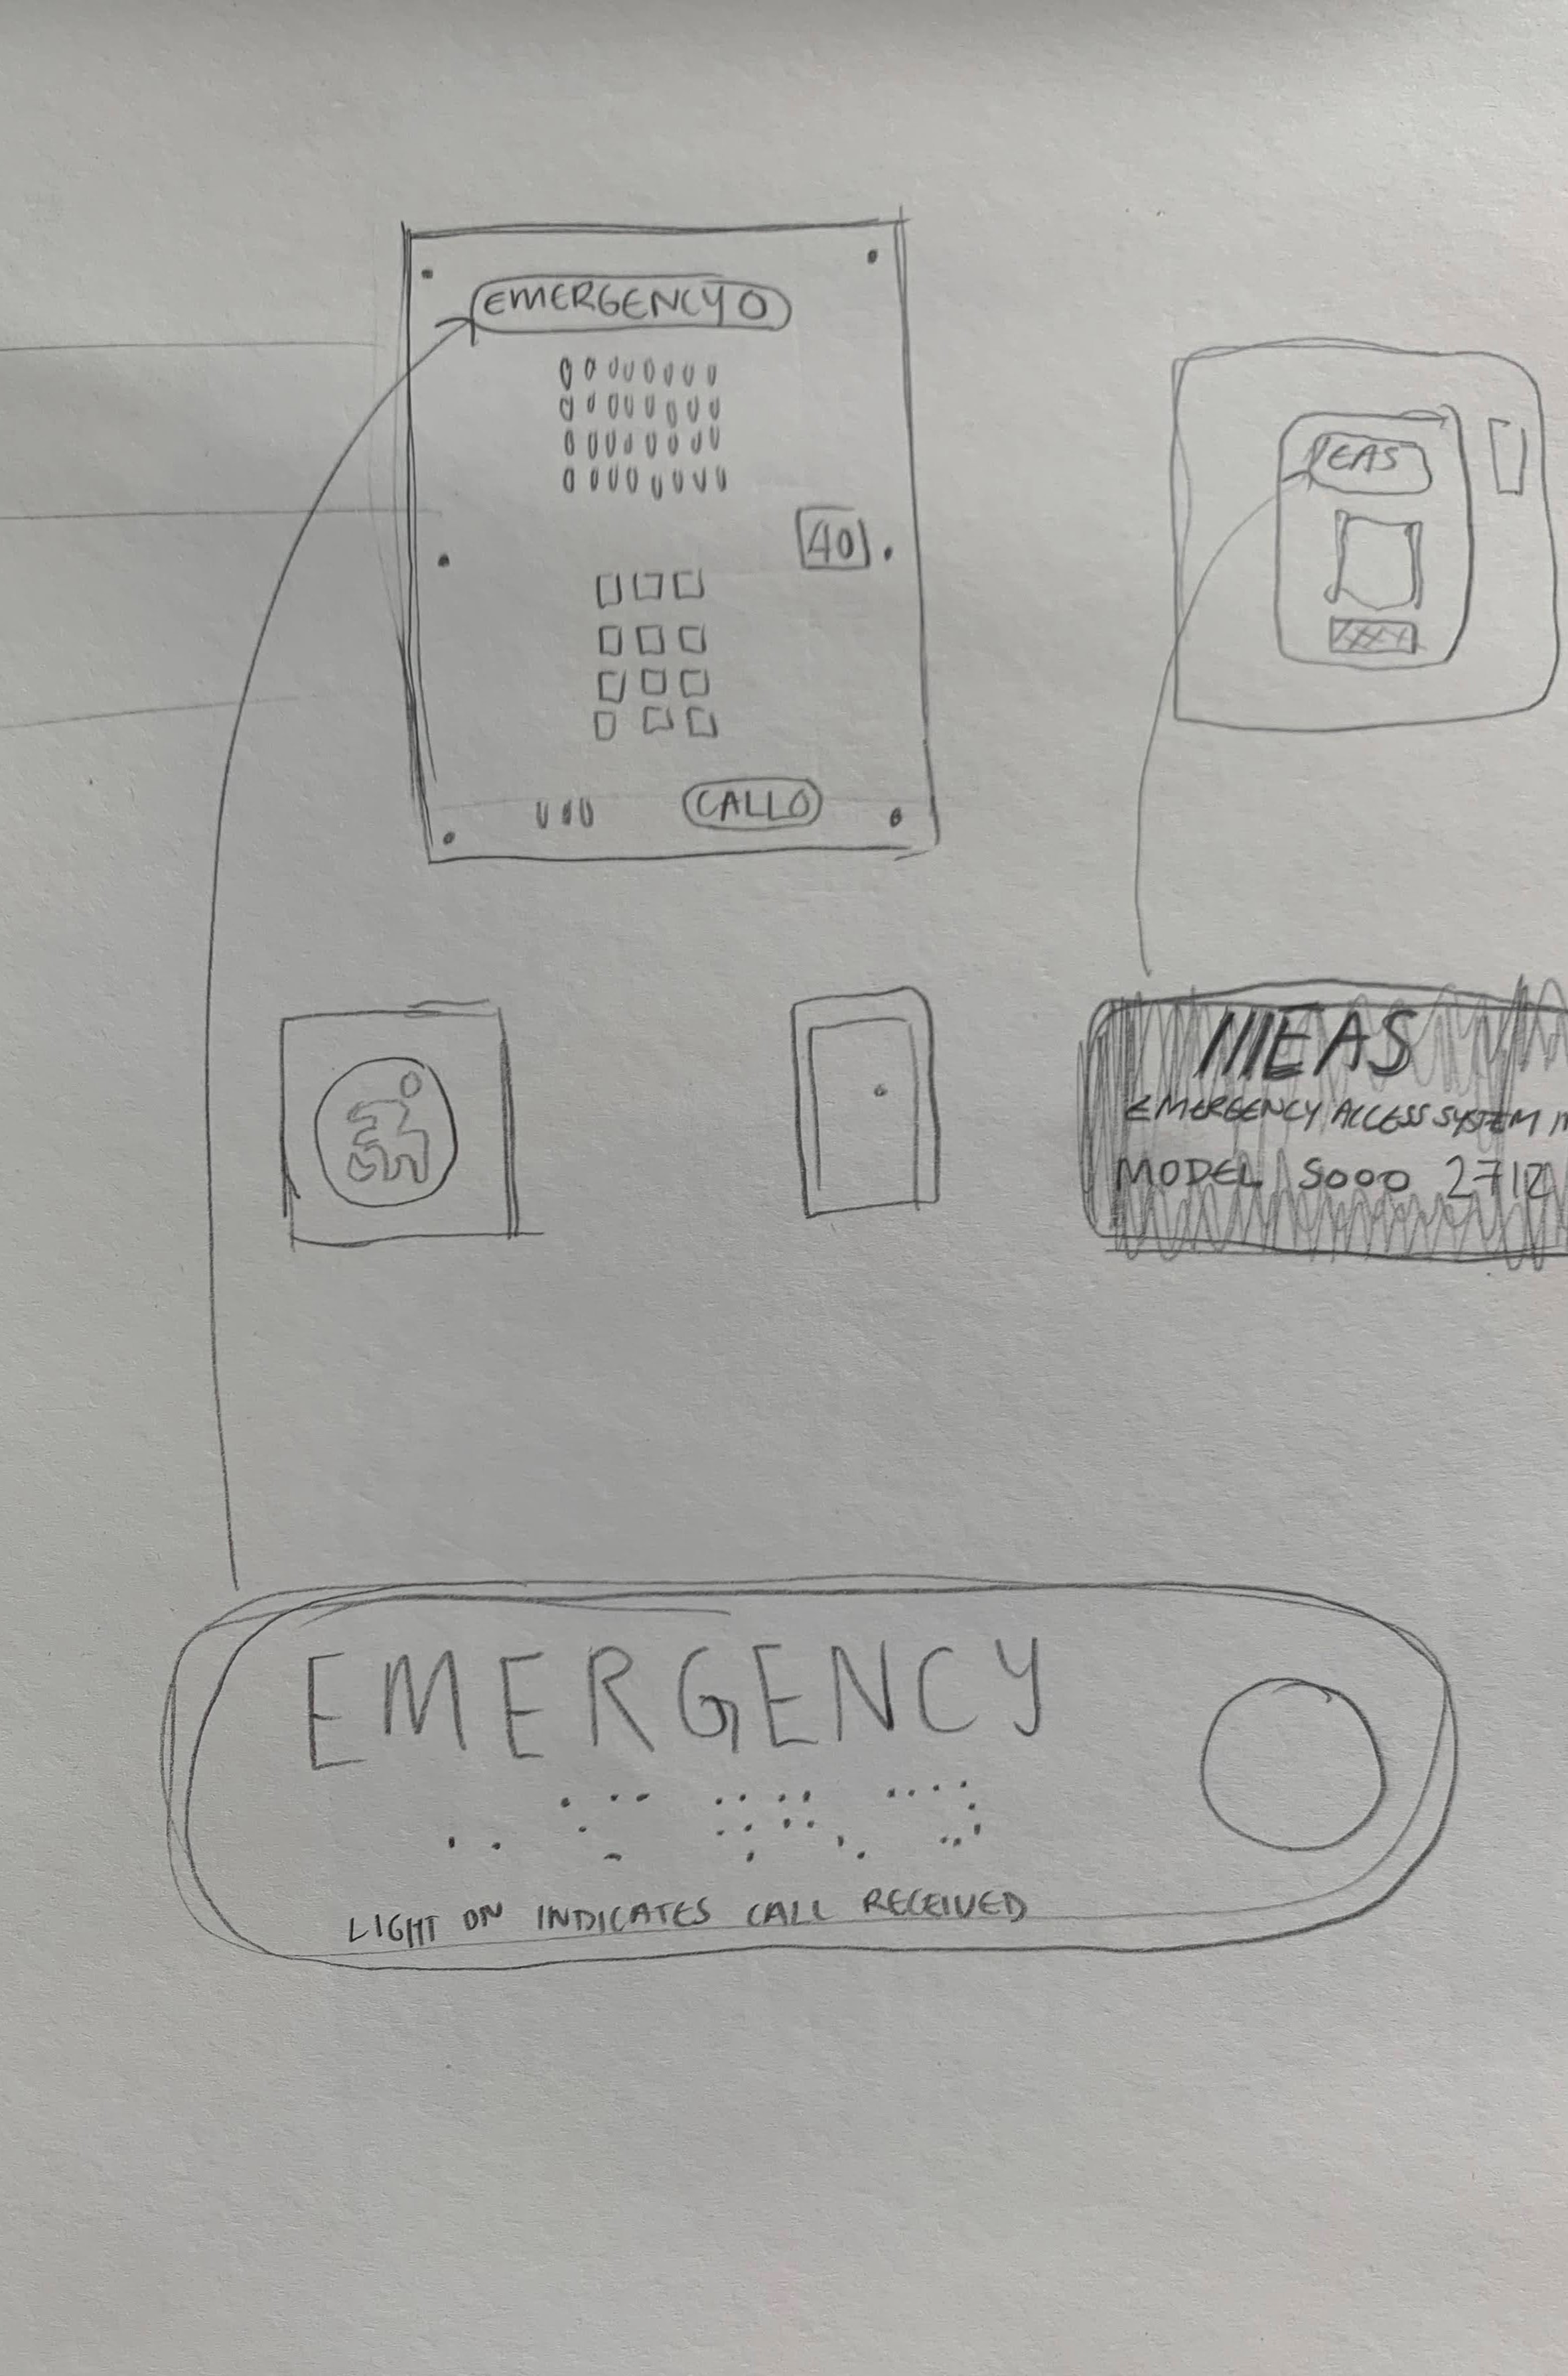 EMERGENCY
EAS
40
CALL
EAS
EMERGENCY ACCESS SYSTEM
MODEL 5000 2712
EMERGENCY
LIGHT ON INDICATES CALL RECEIVED